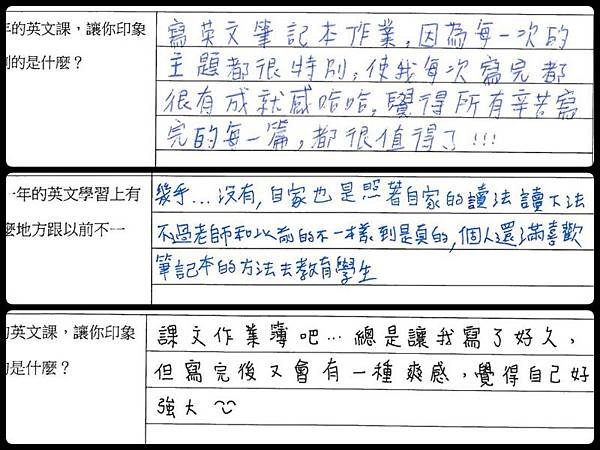 年的英文課，讓你印象
寫英文筆記本作業，因為每一次的
刻的是什麼？
主題都很特別，使我每次寫完都
很有成就感哈哈，覺得所有辛苦寫
完的每一篇，都很值得了!!!
一年的英文學習上有
幾乎...沒有，自家也是照著自家的讀法讀下去
麼地方跟以前不一
不過老師和以前的不一樣到是真的，個人還滿喜歡
筆記本的方法去教育學生
的英文課，讓你印象
課文作業簿吧…總是讓我寫了好久，
的是什麼？
但寫完後又會有一種爽感，覺得自己好
強大